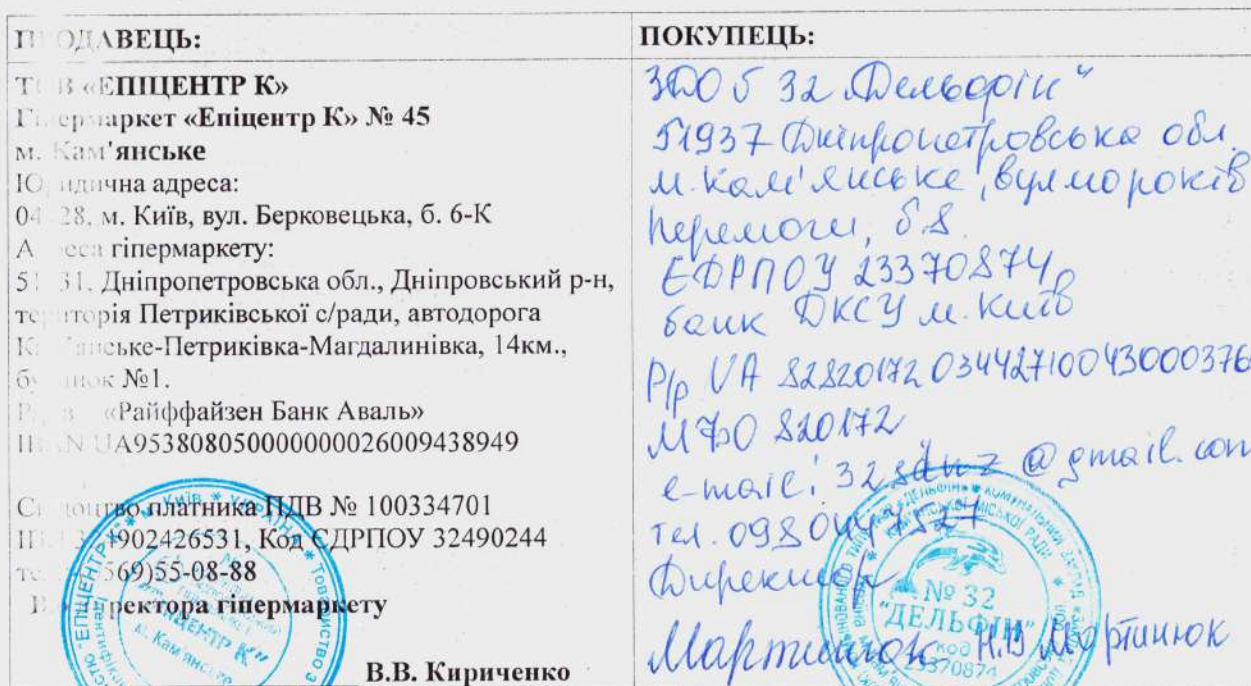 ПРОДАВЕЦЬ:
ТОВ «ЕПІЦЕНТР К»
Гіпермаркет «Епіцентр К» № 45
м. Кам'янське
Юридична адреса:
28, м. Київ, вул. Берковецька, б. 6-К
Адреса гіпермаркету:
Дніпропетровська обл., Дніпровський р-н,
територія Петриківської с/ради, автодорога
Кам'янське-Петриківка-Магдалинівка, 14км.,
будинок №1.
«Райффайзен Банк Аваль»
IBAN UA953808050000000026009438949
Свідоцтво платника ПДВ № 100334701
Код ЄДРПОУ 32490244
569)55-08-88
директора гіпермаркету
В.В. Кириченко
ПОКУПЕЦЬ:
ЗДО 32 "Дельфін"
51937 Дніпропетровська обл.
м. Кам'янське, вул
Перемоги, б.8
ЄДРПОУ 23370874
банк ДКСУ м. Київ
Р/р UA 828201720344271004300037
МФО 820172
e-mail: @gmail.com
тел.
Директор
Мартинюк Н.В Мартинюк
№ 32
"ДЕЛЬФІН"
код
23370874